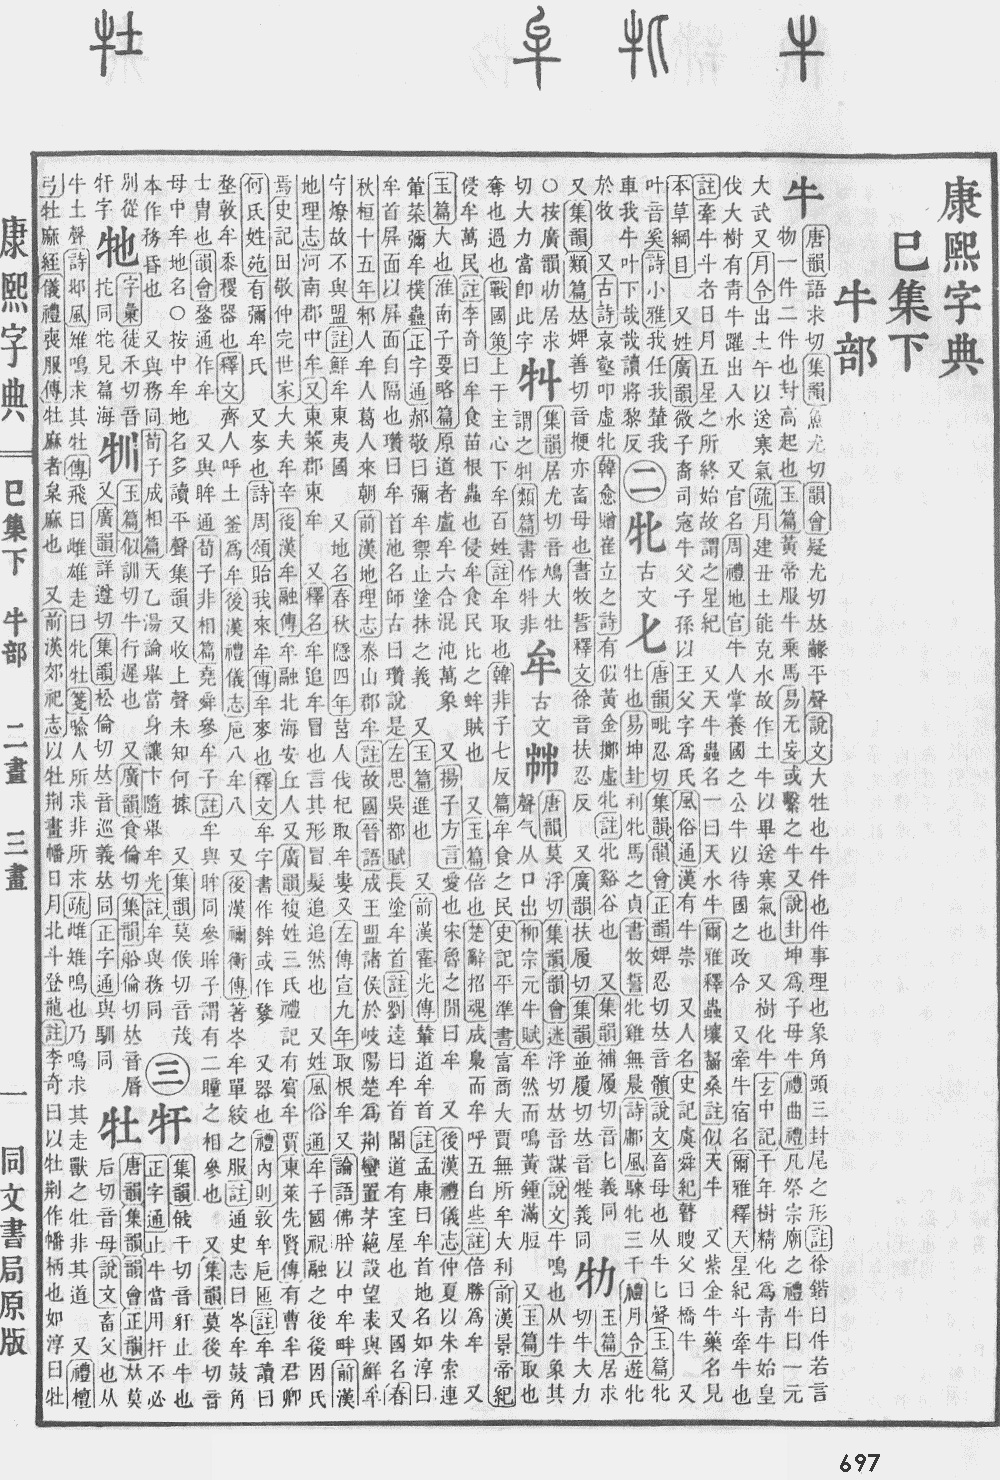 康熙字典
巳集下
牛部
牛
唐韻語求切集韻魚尤切韻會疑尤切𠀤齵平聲說文大牲也牛件也件事理也象角頭三封尾之形註徐鍇曰件若言
物一件二件也封高起也玉篇黃帝服牛乘馬易无妄或繫之牛又說卦坤爲子母牛禮曲禮凡祭宗廟之禮牛曰一元
大武又月令出土牛以送寒氣疏月建丑土能克水故作土牛以畢送寒氣也 又樹化牛玄中記千年樹精化爲靑牛始皇
伐大樹有靑牛躍出入水 又官名周禮地官牛人掌養國之公牛以待國之政令 又牽牛宿名爾雅釋天星紀斗牽牛也
註牽牛斗者日月五星之所終始故謂之星紀 又天牛蟲名一曰天水牛爾雅釋蟲蠰齧桑註似天牛 又紫金牛藥名見
本草綱目 又姓廣韻微子裔司寇牛父子孫以王父字爲氏風俗通漢有牛崇 又人名史記虞舜紀瞽瞍父曰橋牛 又
叶音奚詩小雅我任我輦我
車我牛叶下哉哉讀將黎反
二
牝
古文
𠤎
唐韻毗忍切集韻韻會正韻婢忍切𠀤音髕說文畜母也从牛匕聲玉篇牝
牡也易坤卦利牝馬之貞書牧誓牝雞無晨詩鄘風騋牝三千禮月令遊牝
於牧 又古詩哀壑叩虛牝韓愈贈崔立之詩有似黃金擲虛牝註牝谿谷也 又集韻補履切音匕義同
又集韻類篇𠀤婢善切音楩亦畜母也書牧誓釋文徐音扶忍反 又廣韻扶履切集韻並履切𠀤音牲義同
牞
玉篇居求
切牛大力
○按廣韻牞居求
切大力當卽此字
牪
集韻居尤切音鳩大牡
謂之牪類篇書作牪非
牟
古文
𠔁
唐韻莫浮切集韻韻會迷浮切𠀤音謀說文牛鳴也从牛象其
聲气从口出柳宗元牛賦牟然而鳴黃鍾滿脰 又玉篇取也
奪也過也戰國策上干主心下牟百姓註牟取也韓非子七反篇牟食之民史記平準書富商大賈無所牟大利前漢景帝紀
侵牟萬民註李奇曰牟食苗根蟲也侵牟食民比之蛑賊也 又玉篇倍也楚辭招魂成梟而牟呼五白些註倍勝爲牟 又
玉篇大也淮南子要略篇原道者盧牟六合混沌萬象 又揚子方言愛也宋魯之閒曰牟 又後漢禮儀志仲夏以朱索連
葷菜彌牟樸蠱正字通郝敬曰彌牟禦止塗抹之義 又玉篇進也 又前漢霍光傳輦道牟首註孟康曰牟首地名如淳曰
牟首屏面以屏面自隔也瓚曰牟首池名師古曰瓚說是左思吳都賦長塗牟首註劉逵曰牟首閣道有室屋也 又國名春
秋桓十五年邾人牟人葛人來朝前漢地理志泰山郡牟註故國晉語成王盟諸侯於岐陽楚爲荆蠻置茅蕝設望表與鮮牟
守燎故不與盟註鮮牟東夷國 又地名春秋隱四年莒人伐杞取牟婁又左傳宣九年取根牟又論語佛肸以中牟畔前漢
地理志河南郡中牟又東萊郡東牟 又釋名牟追牟冒也言其形冒髮追追然也 又姓風俗通牟子國祝融之後後因氏
焉史記田敬仲完世家大夫牟辛後漢牟融傳牟融北海安丘人又廣韻複姓三氏禮記有賓牟賈東萊先賢傳有曹牟君卿
何氏姓苑有彌牟氏 又麥也詩周頌貽我來牟傳牟麥也釋文牟字書作麰或作𪍓 又器也禮內則敦牟卮匜註牟讀曰
堥敦牟黍稷器也釋文齊人呼土釜爲牟後漢禮儀志卮八牟八 又後漢禰衡傳著岑牟單絞之服註通史志曰岑牟鼓角
士冑也韻會鍪通作牟 又與眸通荀子非相篇堯舜參牟子註牟與眸同參眸子謂有二瞳之相參也 又集韻莫後切音
母中牟地名○按中牟地名多讀平聲集韻又收上聲未知何據 又集韻莫侯切音茂
本作務昏也 又與務同荀子成相篇天乙湯論舉當身讓卞隨舉牟光註牟與務同
三
牪
集韻俄干切音豻止牛也
正字通止牛當用扞不必
別從牛
牠
字彙徒禾切音
牸字㸰同牠見篇海
牣
玉篇似訓切牛行遲也 又廣韻食倫切集韻船倫切𠀤音脣
又廣韻詳遵切集韻松倫切𠀤音巡義𠀤同正字通與馴同
牡
唐韻集韻韻會正韻𠀤莫
后切音母說文畜父也从
牛土聲詩邶風雉鳴求其牡傳飛曰雌雄走曰牝牡箋喩人所求非所求疏雌雉鳴也乃鳴求其走獸之牡非其道 又禮檀
弓牡麻絰儀禮喪服傳牡麻者枲麻也 又前漢郊祀志以牡荆畫幡日月北斗登龍註李奇曰以牡荆作幡柄也如淳曰牡
康熙字典
巳集下 牛部 二畫 三畫
一
同文書局原版
697